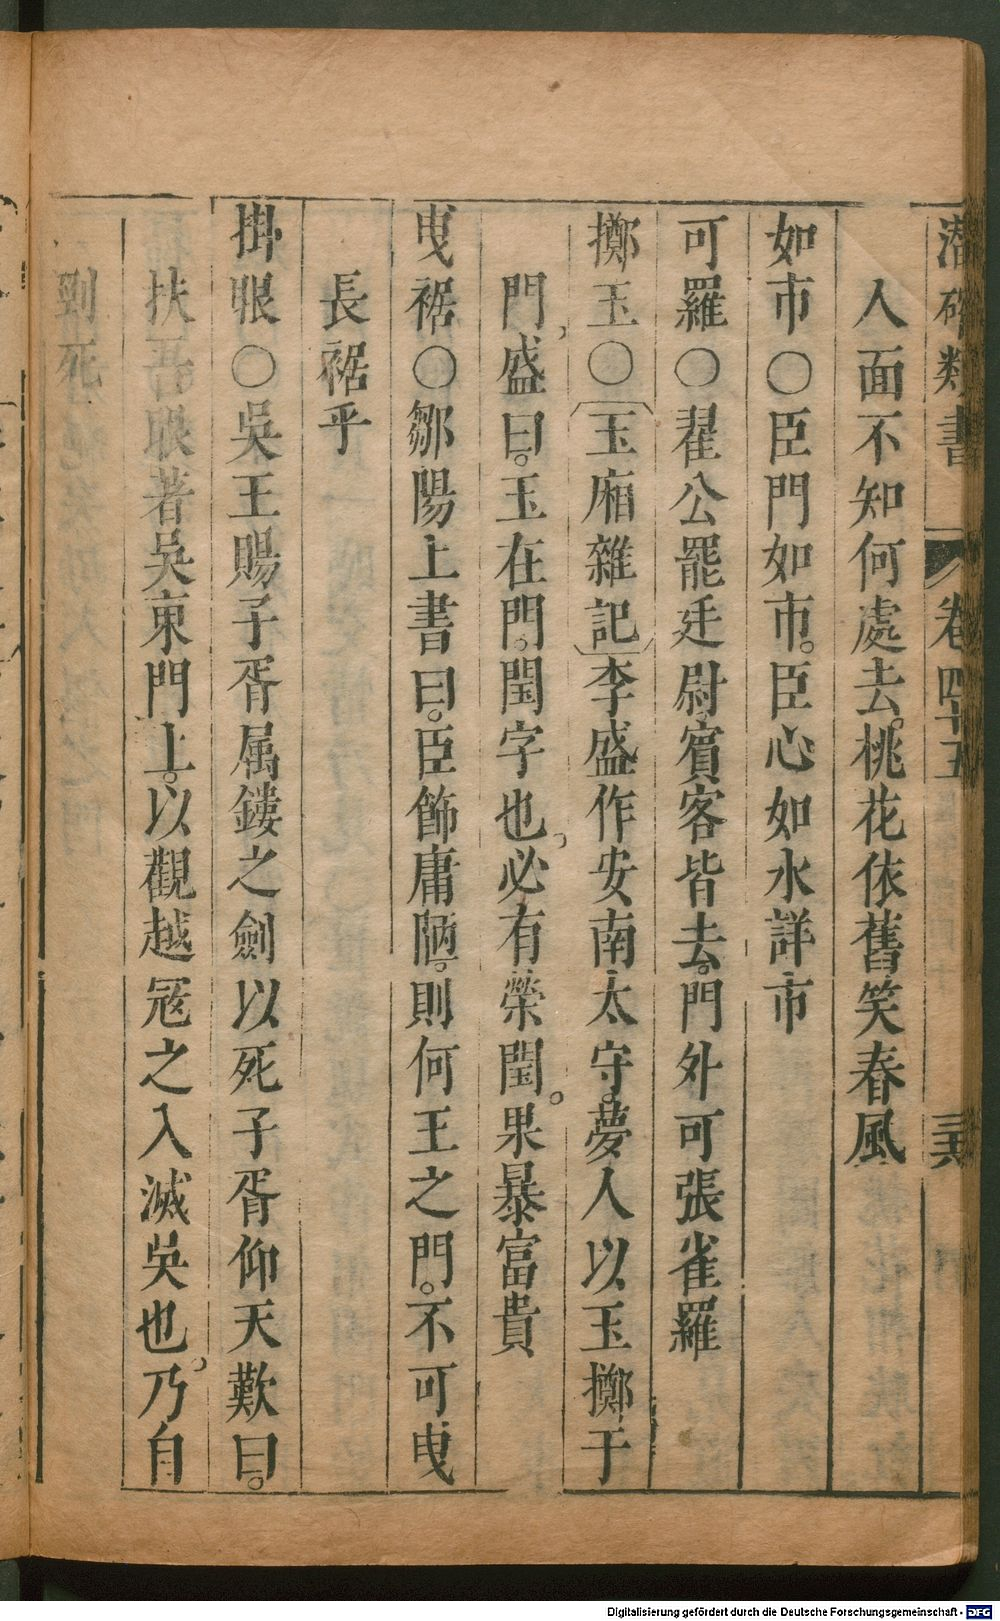 潛確類書 卷四十五 三六
人面不知何處去。桃花依舊笑春風
如市○臣門如市。臣心如水詳市
可羅○翟公罷廷尉。賓客皆去。門外可張雀羅
擲玉○〔玉廂雜記〕李盛作安南太守。夢人以玉擲于
門,盛曰。玉在門。閏字也,必有榮閏。果暴富貴
曳裾○鄒陽上書曰。臣飾庸陋。則何王之門。不可曳
長裾乎
掛眼○吳王賜子胥属鏤之劍以死子胥仰天歎曰。
扶吾眼著吳東門上。以觀越冦之入滅吳也,乃自
剄死
Digitalisierung gefördert durch die Deutsche Forschungsgemeinschaft - DFG